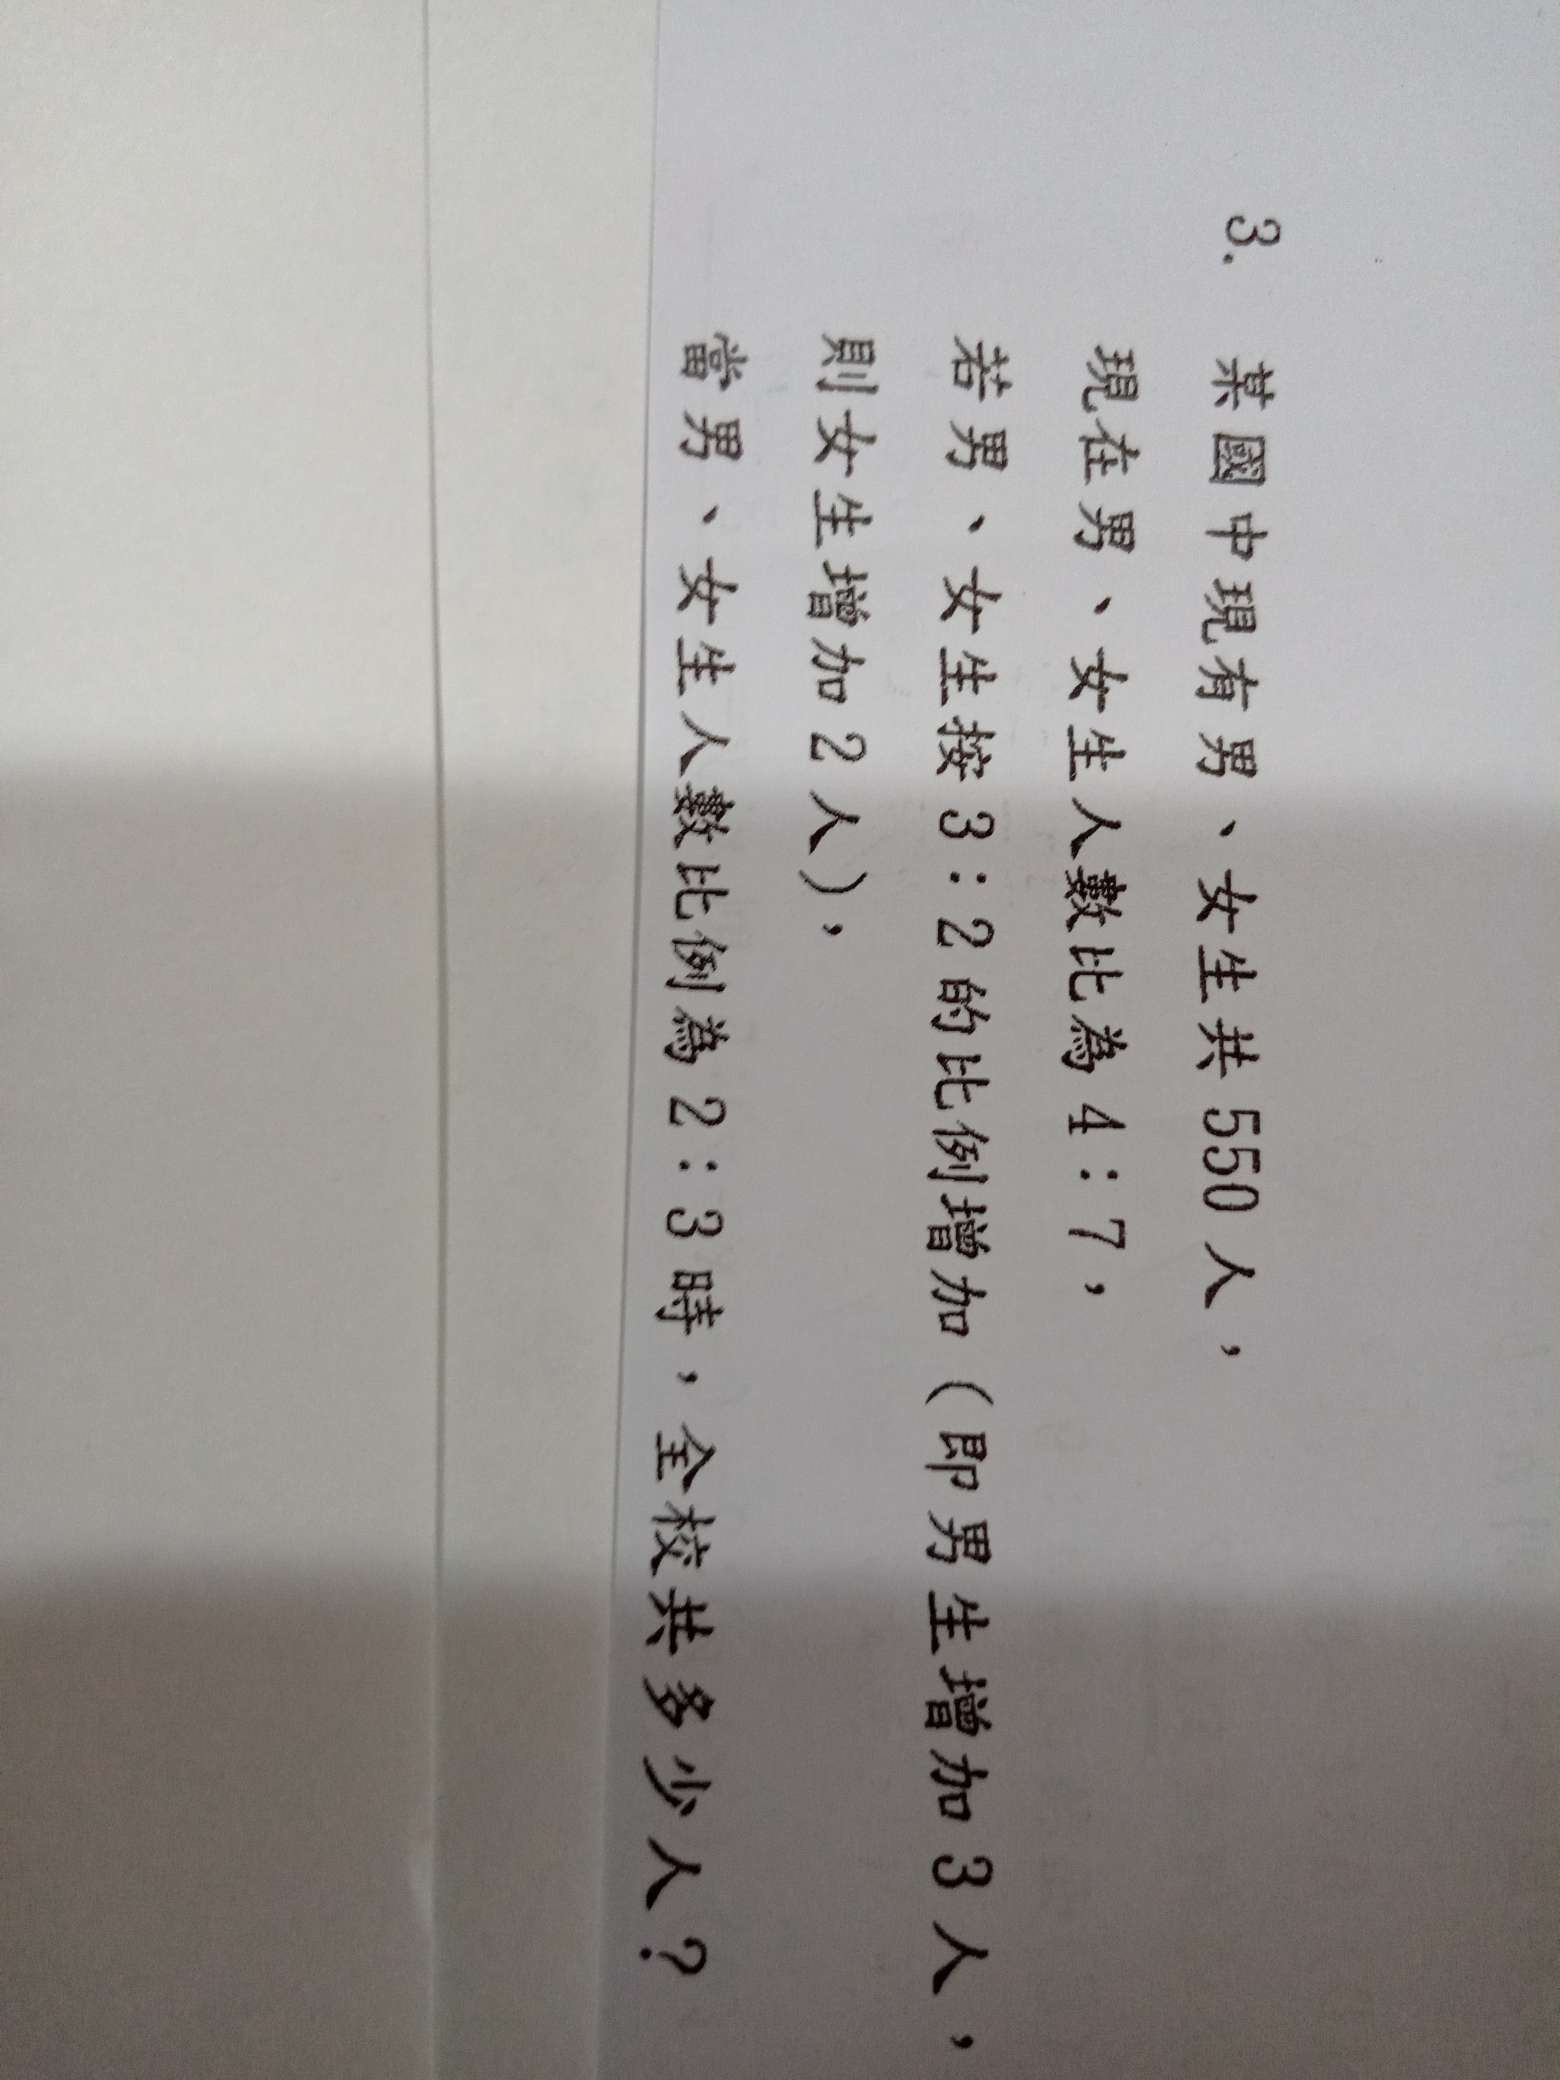 3. 某國中現有男、女生共550人，
現在男、女生人數比為4:7，
若男、女生按3:2的比例增加(即男生增加3人，
則女生增加2人)，
當男、女生人數比例為2:3時，全校共多少人?